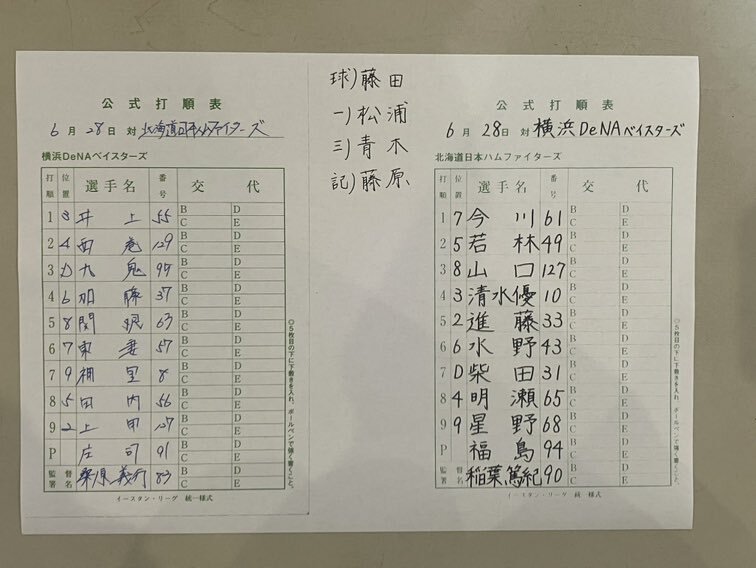 公式打順表
6月28日 対 北海道日本ハムファイターズ
横浜DeNAベイスターズ
打順 位置 選手名 番号 交代
1 3 井上 55 B C D E
2 4 西巻 129 B C D E
3 D 九鬼 95 B C D E
4 6 加藤 37 B C D E
5 8 関根 63 B C D E
6 7 東妻 57 B C D E
7 9 梶原 8 B C D E
8 5 田内 56 B C D E
9 2 上甲 127 B C D E
P 庄司 91 B C D E
監督署名 桑原義行 83 B C D E
イースタン・リーグ 統一様式
◎5枚目の下に下敷きを入れ、ボールペンで強く書くこと。
球)藤田
一)松浦
三)青木
記)藤原
公式打順表
6月28日 対 横浜DeNAベイスターズ
北海道日本ハムファイターズ
打順 位置 選手名 番号 交代
1 7 今川 61 B C D E
2 5 若林 49 B C D E
3 8 山口 127 B C D E
4 3 清水優 10 B C D E
5 2 進藤 33 B C D E
6 6 水野 43 B C D E
7 D 柴田 31 B C D E
8 4 明瀬 65 B C D E
9 9 星野 68 B C D E
P 福島 94 B C D E
監督署名 稲葉篤紀 90 B C D E
イースタン・リーグ 統一様式
◎5枚目の下に下敷きを入れ、ボールペンで強く書くこと。